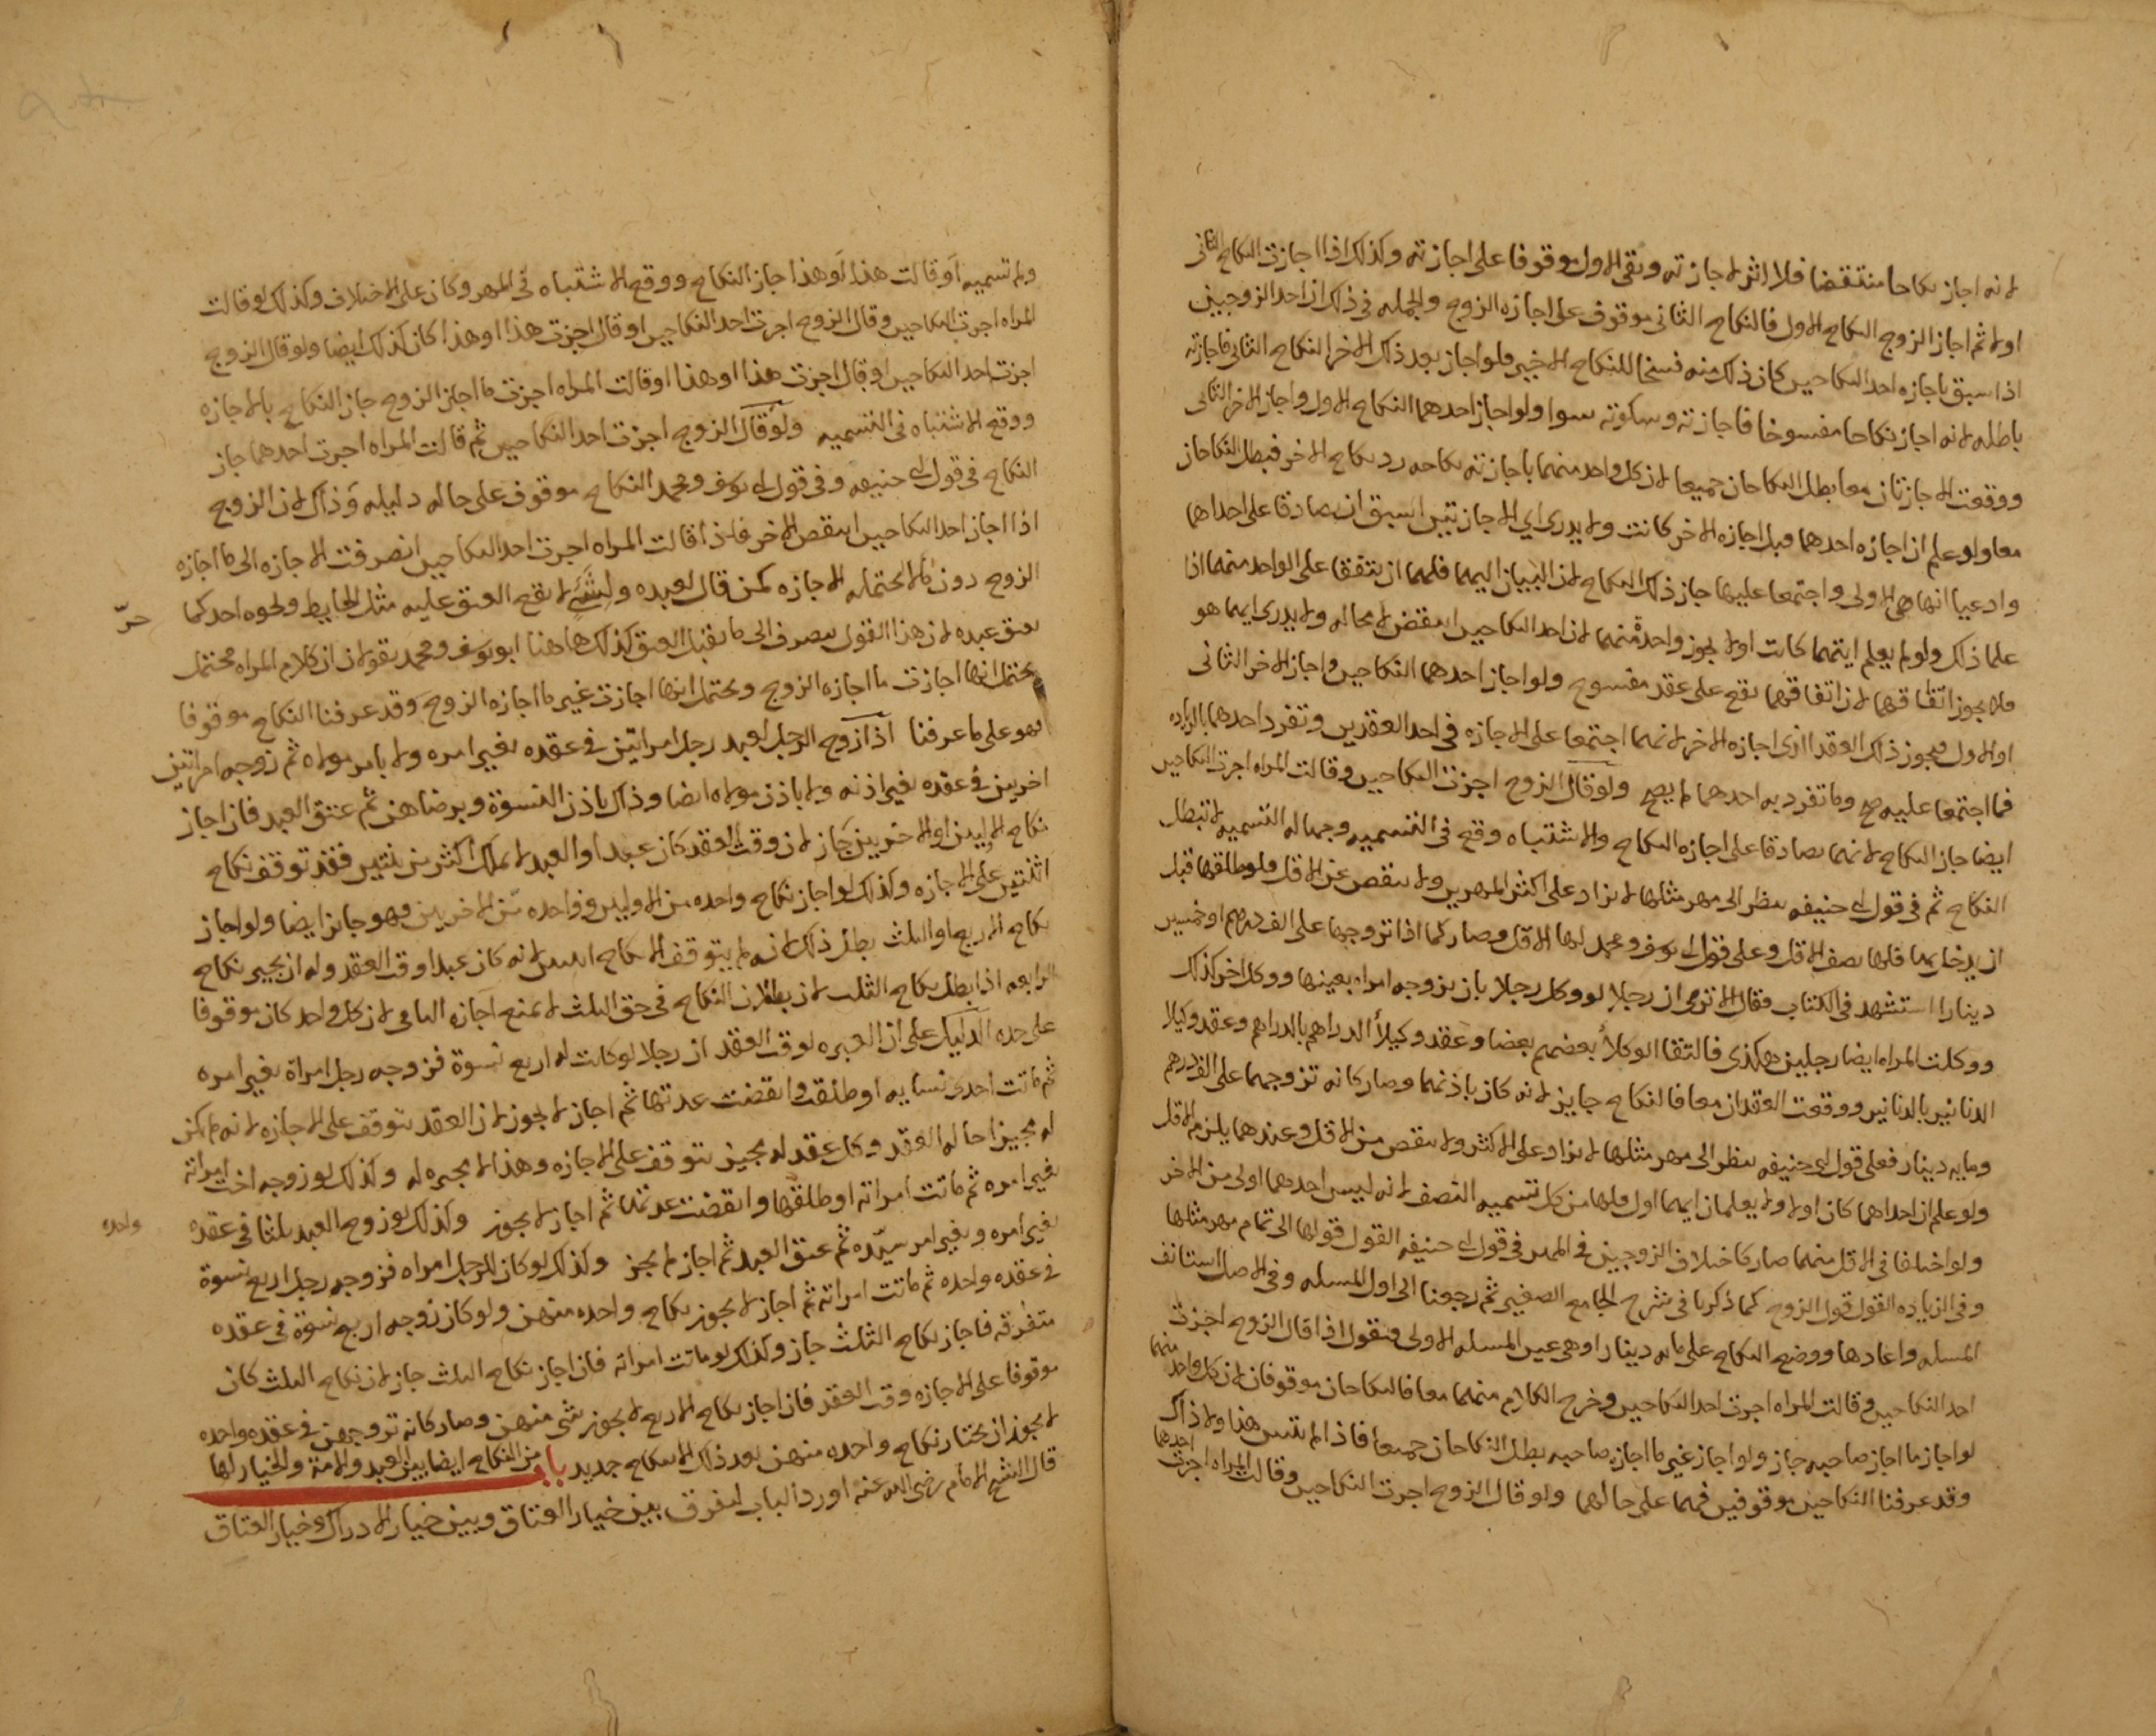 لانه اجاز نكاحا منتقضا فلا اثر لاجازته وبقى الاول موقوفا على اجازته وكذلك اذا اجازت النكاح الثانى
اولا ثم اجاز الزوج النكاح الاول فالنكاح الثانى موقوف على اجازه الزوج والجمله فى ذلك ان احد الزوجين
اذا سبق باجازه احد النكاحين كان ذلك منه فسخا للنكاح الاخير فلو اجاز بعد ذلك الاخر النكاح الثانى فاجازته
باطله لانه اجاز نكاحا مفسوخا فاجازته وسكوته سوا ولو اجاز احدهما النكاح الاول واجاز الاخر الثانى
ووقعت الاجازتان معا بطل النكاحان جميعا لان كل واحد منهما باجازته نكاحه رد نكاح الاخر فبطل النكاحان
معا ولو علم ان اجازه احدهما قبل اجازه الاخر كانت ولا يدرى اي الاجازتين اسبق ان تصادقا على احداهما
وادعيا انها هى الاولى واجتمعا عليها جاز ذلك النكاح لان البيان اليهما فلهما ان يتفقا على الواحد منهما اذا
علما ذلك ولو لم يعلم ايتهما كانت اولا لم يجوز واحدة منهما لان احد النكاحين انتقض لا محاله ولا يدرى ايهما هو
فلا يجوز اتفاقهما لان اتفاقهما يقع على عقد مفسوح ولو اجاز احدهما النكاحين واجاز الاخر الثانى
او الاول فيجوز ذلك العقد الذى اجازه الاخر لانهما اجتمعا على الاجازه فى احد العقدين وتفرد احدهما بالزياده
فما اجتمعا عليه صح وما تفرد به احدهما لم يصح ولو قال الزوج اجزت النكاحين وقالت المراه اجزت النكاحين
ايضا جاز النكاح لانهما تصادقا على اجازه النكاح والاشتباه وقع فى التسميه وجهاله التسميه لا تبطل
النكاح ثم فى قول ابى حنيفه ينظر الى مهر مثلها لا يزاد على اكثر المهرين ولا ينقص عن الاقل ولو طلقها قبل
ان يدخل بها فلها نصف الاقل وعلى قول ابى يوسف ومحمد لها الاقل وصار كما اذا تزوجها على الف درهم او خمسين
دينارا استشهد فى الكتاب فقال الا ترى ان رجلا لو وكل رجلا بان يزوجه امراه بعينها ووكل اخر كذلك
ووكلت المراه ايضا رجلين هكذى فالتقا الوكلاء بعضهم بعضا وعقد وكيلا الدراهم بالدراهم وعقد وكيلا
الدنانير بالدنانير ووقعت العقدان معا فالنكاح جايز لانه كان باذنهما وصار كانه تزوجها على الف درهم
ومايه دينار فعلى قول ابى حنيفه ينظر الى مهر مثلها لا يزاد على الاكثر ولا ينقص من الاقل وعندهما يلزم الاقل
ولو علم ان احداهما كان اولا ولا يعلمان ايهما اول فلها من كل تسميه النصف لانه ليس احدهما اولى من الاخر
ولو اختلفا فى الاقل منهما صار كاختلاف الزوجين فى المهر فى قول ابى حنيفه القول قولها الى تمام مهر مثلها
وفى الزياده القول قول الزوج كما ذكرنا فى شرح الجامع الصغير ثم رجعنا الى اول المسله وفى الاصل استانف
المسله واعادها ووضع النكاح على مايه دينار او هى عين المسله الاولى فيقول اذا قال الزوج اجزت
احد النكاحين وقالت المراه اجزت احد النكاحين وخرج الكلام منهما معا فالنكاحان موقوفان لان كل واحد منهما
لو اجاز ما اجاز صاحبه جاز ولو اجاز غير ما اجازه صاحبه بطل النكاحان جميعا فاذا لم يتبين هذا ولا ذاك
وقد عرفنا النكاحين موقوفين فهما على حالهما ولو قال الزوج اجزت النكاحين وقالت المراه اجزت احدهما
ولم تسميه او قالت هذا او هذا جاز النكاح ووقع الاشتباه فى المهر وكان على الاختلاف وكذلك لو قالت
المراه اجزت النكاحين وقال الزوج اجزت احد النكاحين او قال اجزت هذا او هذا كان كذلك ايضا ولو قال الزوج
اجزت احد النكاحين او قال اجزت هذا او هذا او قالت المراه اجزت ما اجاز الزوج جاز النكاح بالاجازه
ووقع الاشتباه فى التسميه ولو قال الزوج اجزت احد النكاحين ثم قالت المراه اجزت احدهما جاز
النكاح فى قول ابى حنيفه وفى قول ابى يوسف ومحمد النكاح موقوف على حاله دليله وذلك لان الزوج
اذا اجاز احد النكاحين انتقض الاخر فاذا قالت المراه اجزت احد النكاحين انصرفت الاجازه الى ما اجازه
الزوج دون ما لا يحتمله الاجازه كمن قال لعبده ولشئ لا يقع العتق عليه مثل الحايط ونحوه احدكما حرّ
يعتق عبده لان هذا القول ينصرف الى ما يقبل العتق كذلك هاهنا ابو يوسف ومحمد يقولان ان كلام المراه محتمل
يحتمل انها اجازت ما اجازه الزوج ويحتمل انها اجازت غير ما اجازه الزوج وقد عرفنا النكاح موقوفا
فهو على ما عرفنا اذا زوج الرجل لعبد رجل امراتين فى عقده بغير امره ولا بامر مولاه ثم زوجه امراتين
اخريين فى عقده بغير اذنه ولا باذن مولاه ايضا وذلك باذن النسوة وبرضاهن ثم عتق العبد فان اجاز
نكاح الاوليين او الاخريين جاز لان وقت العقد كان عبدا والعبد لا يملك اكثر من ثنتين فقد توقف نكاح
اثنتين على الاجازه وكذلك لو اجاز نكاح واحده من الاوليين وواحده من الاخريين فهو جايز ايضا ولو اجاز
نكاح الاربع او الثلث بطل ذلك لانه لم يتوقف الا نكاح اثنتين لانه كان عبدا وقت العقد وله ان يجيز نكاح
الرابعه اذا بطل نكاح الثلث لان بطلان النكاح فى حق الثلث لا يمنع اجازه الباقى لان كل واحد كان موقوفا
على حده الدليل على ان العبره لوقت العقد ان رجلا لو كانت له اربع نسوة فزوجه رجل امراة بغير امره
ثم ماتت احدى نسايه او طلقت وانقضت عدتها ثم اجاز لا يجوز لان العقد يتوقف على الاجازه لانه لم يكن
له مجيز احاله العقد وكل عقد له مجيز يتوقف على الاجازه وهذا لا مجيز له وكذلك لو زوجه اخت امراته
بغير امره ثم ماتت امراته او طلقها وانقضت عدتها ثم اجاز لا يجوز وكذلك لو زوج العبد ثلثا فى عقده واحده
بغير امره وبغير امر سيّده ثم عتق العبد ثم اجاز لم يجز وكذلك لو كان للرجل امراه فزوجه رجل اربع نسوة
فى عقده واحده ثم ماتت امراته ثم اجاز لا يجوز نكاح واحده منهن ولو كان زوجه اربع نسوة فى عقده
متفرقه فاجاز نكاح الثلث جاز وكذلك لو ماتت امراته فان اجاز نكاح الثلث جاز لان نكاح الثلث كان
موقوفا على الاجازه وقت العقد فان اجاز نكاح الاربع لا يجوز شى منهن وصار كانه تزوجهن فى عقده واحده
لا يجوز ان يختار نكاح واحده منهن بعد ذلك الا بنكاح جديد باب من النكاح ايضا بين العبد والامة والخيار لها
قال الشيخ الامام رضى الله عنه اورد الباب لتفرق بين خيار العتاق وبين خيار الادراك وخيار العتاق